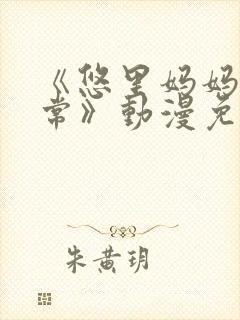 《悠里妈妈
常》動漫免
朱黄玥